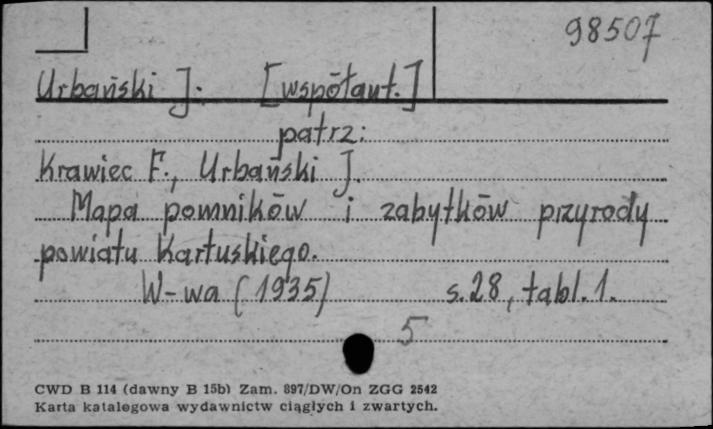 98507
Urbański J. [współaut.]
patrz:
Krawiec F., Urbański J.
Mapa pomników i zabytków przyrody
powiatu Kartuskiego.
W-wa (1935) s. 28, tabl. 1.
5
CWD B 114 (dawny B 15b) Zam. 897/DW/On ZGG 2542
Karta katalogowa wydawnictw ciągłych i zwartych.